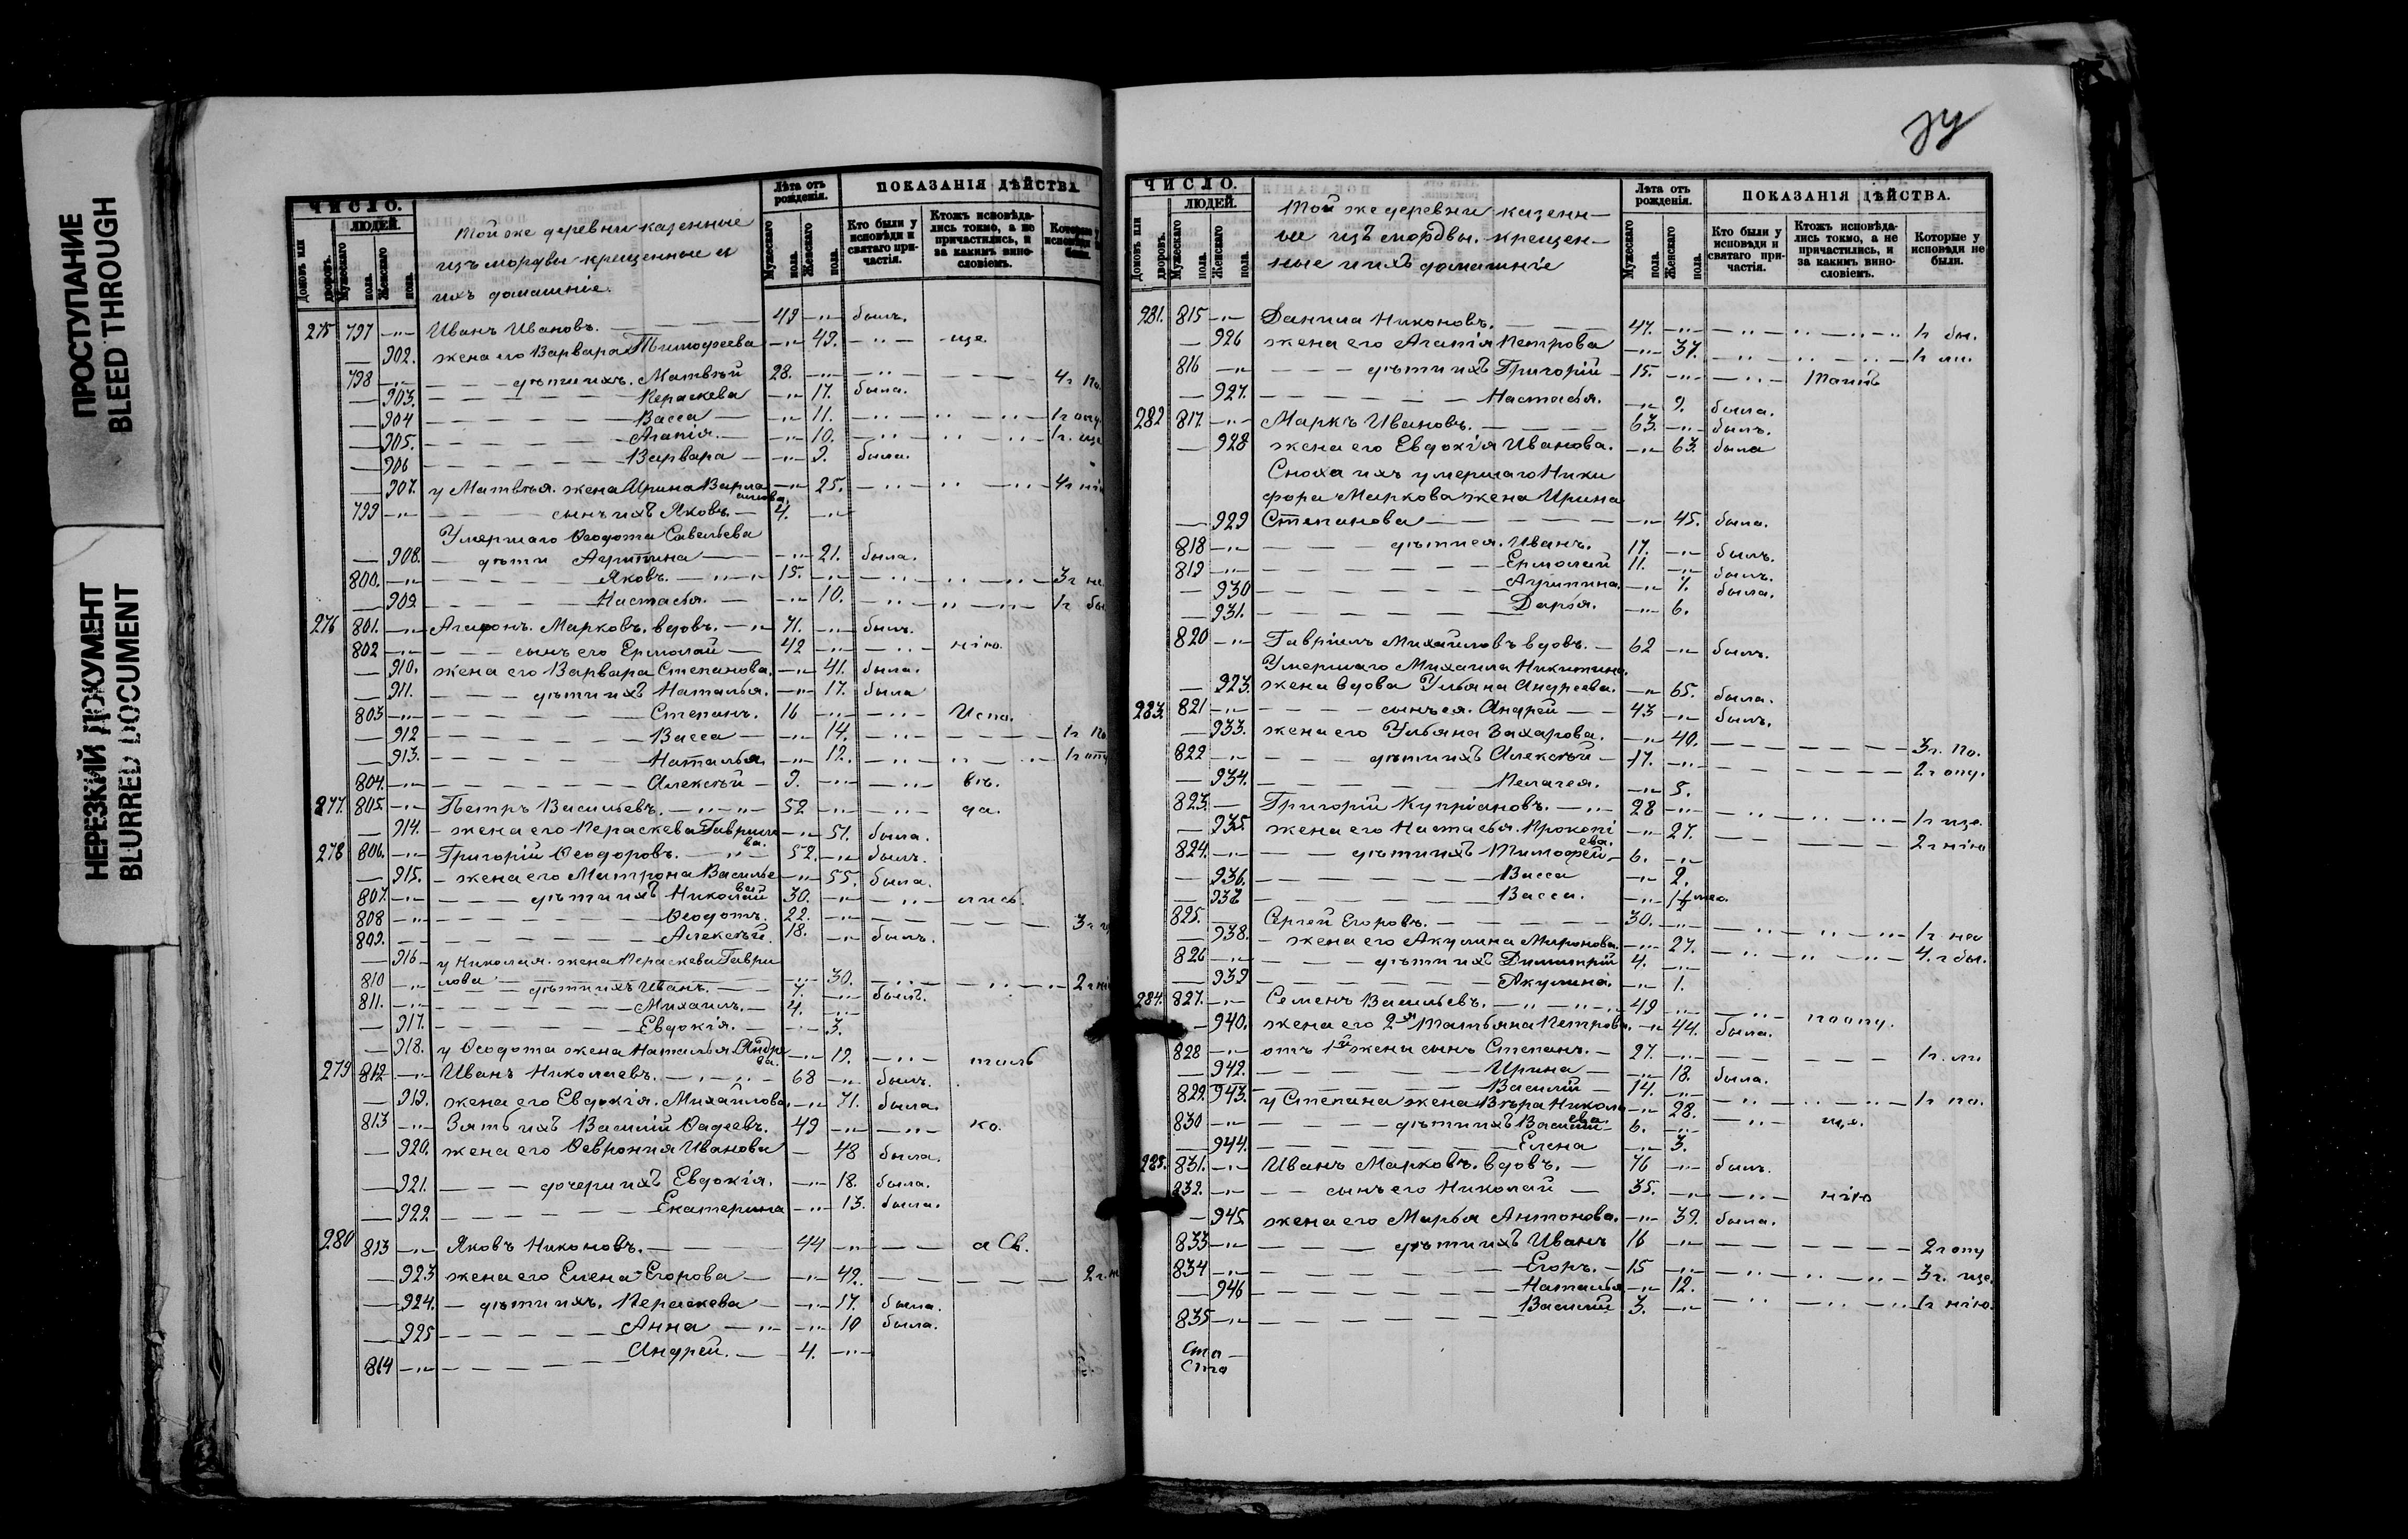 ПРОСТУПАНИЕ
BLEED THROUGH
НЕРЕЗКИЙ ДОКУМЕНТ
BLURRED DOCUMENT
ЧИСЛО.
ЛЮДЕЙ.
Домовъ или дворовъ.
Мужескаго пола.
Женскаго пола.
Той же деревни казенные
изъ мордвы крещенные и
ихъ домашние.
Лѣта отъ рожденія.
Мужескаго пола.
Женскаго пола.
ПОКАЗАНІЯ ДѢЙСТВА.
Кто были у исповѣди и святаго причастія.
Ктожъ исповѣдались токмо, а не причастились, и за какимъ винословіемъ.
275 797 Иванъ Ивановъ. 49 былъ.
902. жена его Варвара Тимофеева 49. ще.
798 дѣти ихъ. Матвѣй 28. 4 г по
903. Пераскева 17. была.
904 Васса 11. 1 г опу
905. Агапія. 10. 1 г. ще
906 Варвара 9. была.
907. у Матвѣя. жена Ирина Варла 25. 4 г нію
амова.
799 сынъ ихъ Яковъ. 4.
Умершаго Ѳеодота Савельева
908. дѣти Агрипина 21. была.
800. Яковъ. 15. 3 г не
909. Настасья. 10. 1 г бы
276 801. Агафонъ. Марковъ. вдовъ. 71. былъ.
802 сынъ его Ермолай 42 нію.
910. жена его Варвара Степанова. 41. была.
911. дѣти ихъ Наталья. 17. была
803 Степанъ. 16 Испо.
912 Васса 14. 1 г по
913. Наталья. 12. 1 г опу
804. Алексѣй 9. вѣ.
277. 805 Петръ Васильевъ. 52 да.
914. жена его Пераскева Гаврило 51. была.
ва.
278 806. Григорій Ѳеодоровъ. 52. былъ.
915. жена его Матрона Василье 55. была.
ва
807. дѣти ихъ Николай 30. лись.
808 Ѳеодотъ. 22. 3 г
809. Алексѣй. 18. былъ.
916 у Николая. жена Пераскева Гаври
лова 30. 2 г нію
810 дѣти ихъ Иванъ. 7. былъ.
811. Михаилъ. 4.
917. Евдокія. 3.
918. у Ѳеодота жена Наталья Андре 19. толь
ва.
279 812 Иванъ Николаевъ. 68 былъ.
919. жена его Евдокія. Михайлова. 71. была.
813 Зять ихъ Василій Ѳадеевъ. 49 ко.
920. жена его Ѳевронія Иванова 48 была.
921. дочери ихъ Евдокія. 18. была.
922 Екатерина 13. была.
280 813 Яковъ Никоновъ. 44 а Св.
923 жена его Елена Егорова 42. 2 г. н
924. дѣти ихъ. Пераскева 17. была.
925 Анна 10 была.
814 Андрей. 4.
ЧИСЛО.
ЛЮДЕЙ.
Домовъ или дворовъ.
Мужескаго пола.
Женскаго пола.
Той же деревни казенн
ые изъ мордвы. крещен
ные и ихъ домашніе
Лѣта отъ рожденія.
Мужескаго пола.
Женскаго пола.
ПОКАЗАНІЯ ДѢЙСТВА.
Кто были у исповѣди и святаго причастія.
Ктожъ исповѣдались токмо, а не причастились, и за какимъ винословіемъ.
Которые у исповѣди не были.
281. 815 Данила Никоновъ. 47. 1 г бы.
926 жена его Агапія Петрова 37. 1 г ли.
816 дѣти ихъ Григорій 15. Таинъ
927. Настасья. 9. была.
282 817. Маркъ Ивановъ. 63. былъ.
928 жена его Евдокія Иванова. 63. была
Сноха ихъ умершаго Ники
фора Маркова жена Ирина
929 Степанова 45. была.
818 дѣти ея. Иванъ. 17. былъ.
819 Ермолай 11. былъ.
930 Агрипина. 7. была.
931. Дарья. 6.
820 Гавріилъ Михайловъ вдовъ. 62 былъ.
Умершаго Михаила Никитина.
923. жена вдова Ульяна Андреева. 65. была.
283. 821 сынъ ея. Андрей 43 былъ.
933. жена его Ульяна Захарова. 40. 3 г. по.
822 дѣти ихъ Алексѣй 17. 2 г опу.
934. Пелагея. 5.
823 Григорій Купріановъ. 28 1 г ще.
935. жена его Настасья. Прокопі 27. 2 г нію
ева.
824. дѣти ихъ Тимофей 6.
936. Васса 2.
937 Васса. 1/2 го.
825. Сергей Егоровъ. 30. 1 г. нео
938. жена его Акулина Миронова. 27. 4. г бы.
826 дѣти ихъ Димитрій 4.
939 Акулина. 1.
284. 827. Семенъ Васильевъ. 49 по опу.
940. жена его 2я Татьяна Петрова. 44. была.
828 отъ 1й жены сынъ Степанъ. 27. 1 г. ли
942. Ирина 18. была.
829. Василій 14. 1 г по.
943. у Степана жена Вѣра Никола 28. ще.
ева.
830 дѣти ихъ Василій 6.
944. Елена 3.
285. 831. Иванъ Марковъ. вдовъ. 76 былъ.
832. сынъ его Николай 35. нію
945 жена его Марья Антонова. 39. была.
833 дѣти ихъ Иванъ 16 2 г опу
834 Егоръ. 15 3 г. ще.
946 Наталья 12. 1 г нію.
835 Василий 3.